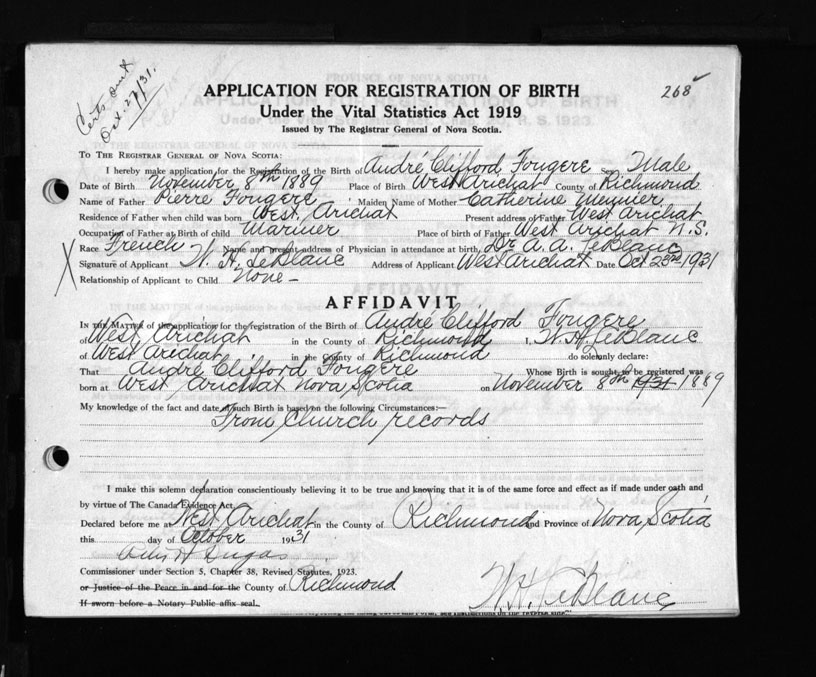 Certs sent
Oct. 27/31.
268
APPLICATION FOR REGISTRATION OF BIRTH
Under the Vital Statistics Act 1919
Issued by The Registrar General of Nova Scotia.
TO THE REGISTRAR GENERAL OF NOVA SCOTIA:
I hereby make application for the Registration of the Birth of André Clifford Fougere Sex Male
Date of Birth November 8th 1889 Place of Birth West Arichat County of Richmond
Name of Father Pierre Fougere Maiden Name of Mother Catherine
Residence of Father when child was born West Arichat Present address of Father West Arichat
Occupation of Father at Birth of child Mariner Place of birth of Father West Arichat N.S.
Race French Name and present address of Physician in attendance at birth, Dr. A. A. LeBlanc
X Signature of Applicant W. H. LeBlanc Address of Applicant West Arichat Date Oct 23rd 1931
Relationship of Applicant to Child None -
AFFIDAVIT
IN THE MATTER of the application for the registration of the Birth of André Clifford Fougere
of West Arichat in the County of Richmond I, W. H. LeBlanc
of West Arichat in the County of Richmond do solemnly declare:
That André Clifford Fougere Whose Birth is sought to be registered was
born at West Arichat Nova Scotia on November 8th 1931 1889
My knowledge of the fact and date of such Birth is based on the following Circumstances:—
From Church records
I make this solemn declaration conscientiously believing it to be true and knowing that it is of the same force and effect as if made under oath and
by virtue of The Canada Evidence Act.
Declared before me at West Arichat in the County of Richmond and Province of Nova Scotia
this day of October 1931
Commissioner under Section 5, Chapter 38, Revised Statutes, 1923.
or Justice of the Peace in and for the County of Richmond
W. H. LeBlanc
If sworn before a Notary Public affix seal.